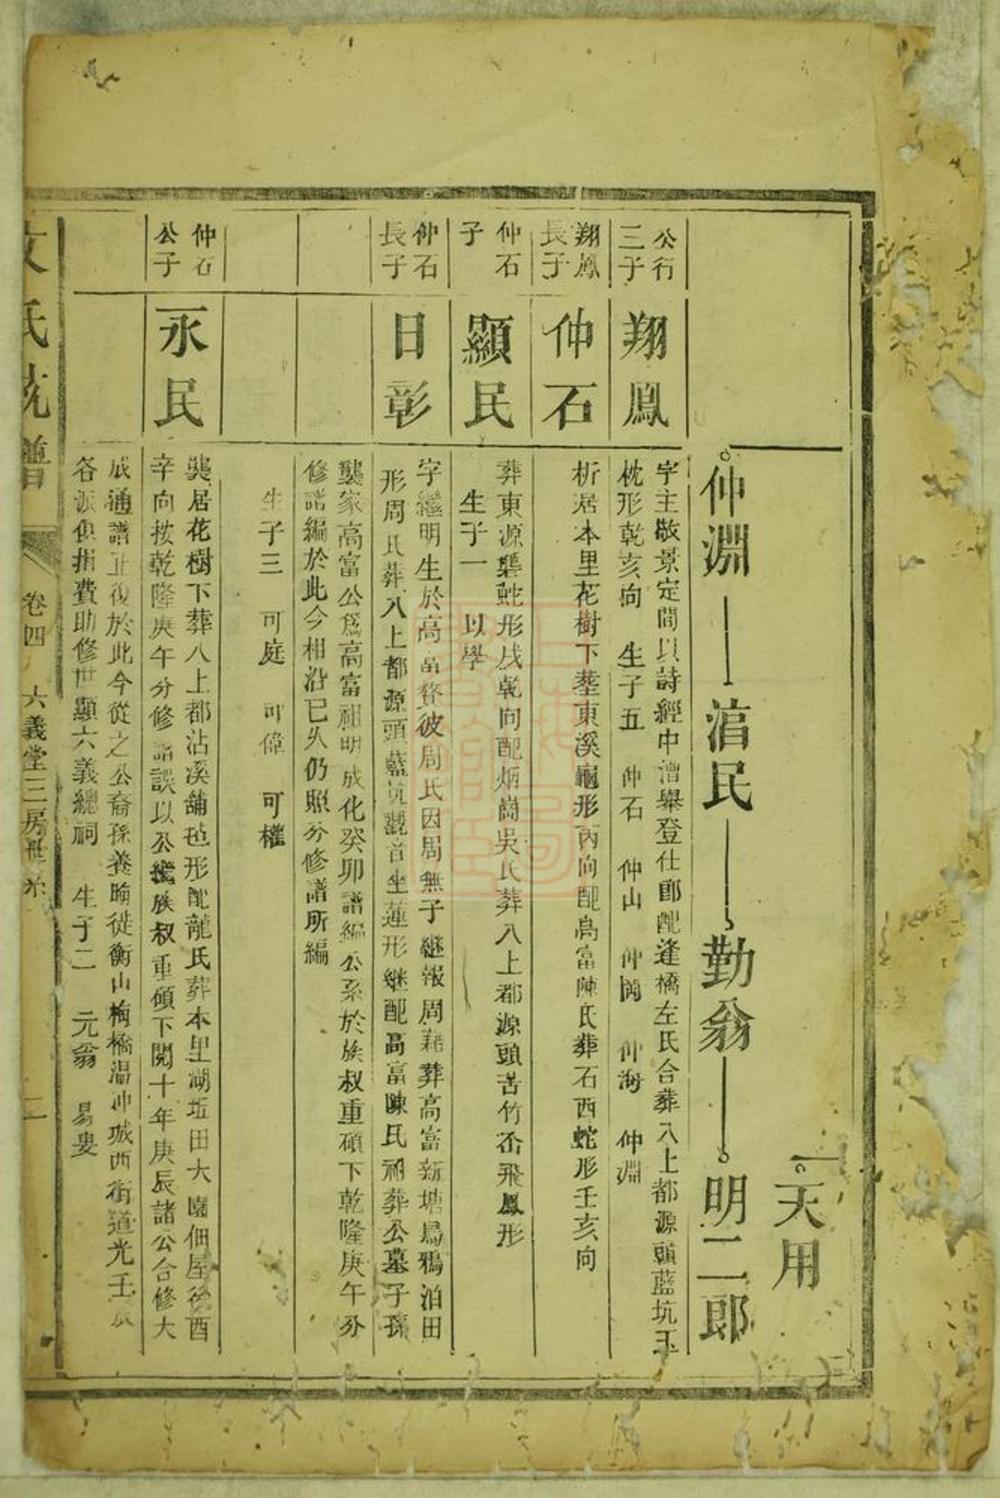 天用
仲淵 涫民 勤翁 明二郎
公行三子
翔鳳
字主敬景定間以詩經中漕舉登仕郎配逢橋左氏合葬八上都源頭藍坑玉
枕形乾亥向 生子五 仲石 仲山 仲岡 仲海 仲淵
翔鳳長子
仲石
析居本里花樹下塟東溪龜形丙向配高富陳氏葬石西蛇形壬亥向
仲石子
顯民
葬東源龒蛇形戌乾向配炳崗吳氏葬八上都源頭苦竹峦飛鳳形
生子一 以學
仲石長子
日彰
字繼明生於高富贅彼周氏因周無子継報周藉葬高富新塘烏鴉泊田
形周氏葬八上都源頭藍坑觀音坐蓮形継配高富陳氏祔葬公墓子孫
襲家高富公爲高富祖明成化癸卯譜編公系於族叔重碩下乾隆庚午分
修譜編於此今相沿已久仍照分修譜所編
生子三 可庭 可偉 可權
仲石公子
永民
龒居花樹下葬八上都沾溪舖 形配龍氏葬本里湖坵田大園佃屋後酉
辛向按乾隆庚午分修譜誤以公 族叔重碩下閱十年庚辰諸公合修大
成通譜正復於此今從之公裔孫義 從衡山梅橋温冲城西街道光壬辰
各派俱捐費助修世顯六義總祠 生子二 元翁 易叟
文氏 譜 卷四 六義堂三房世系 二